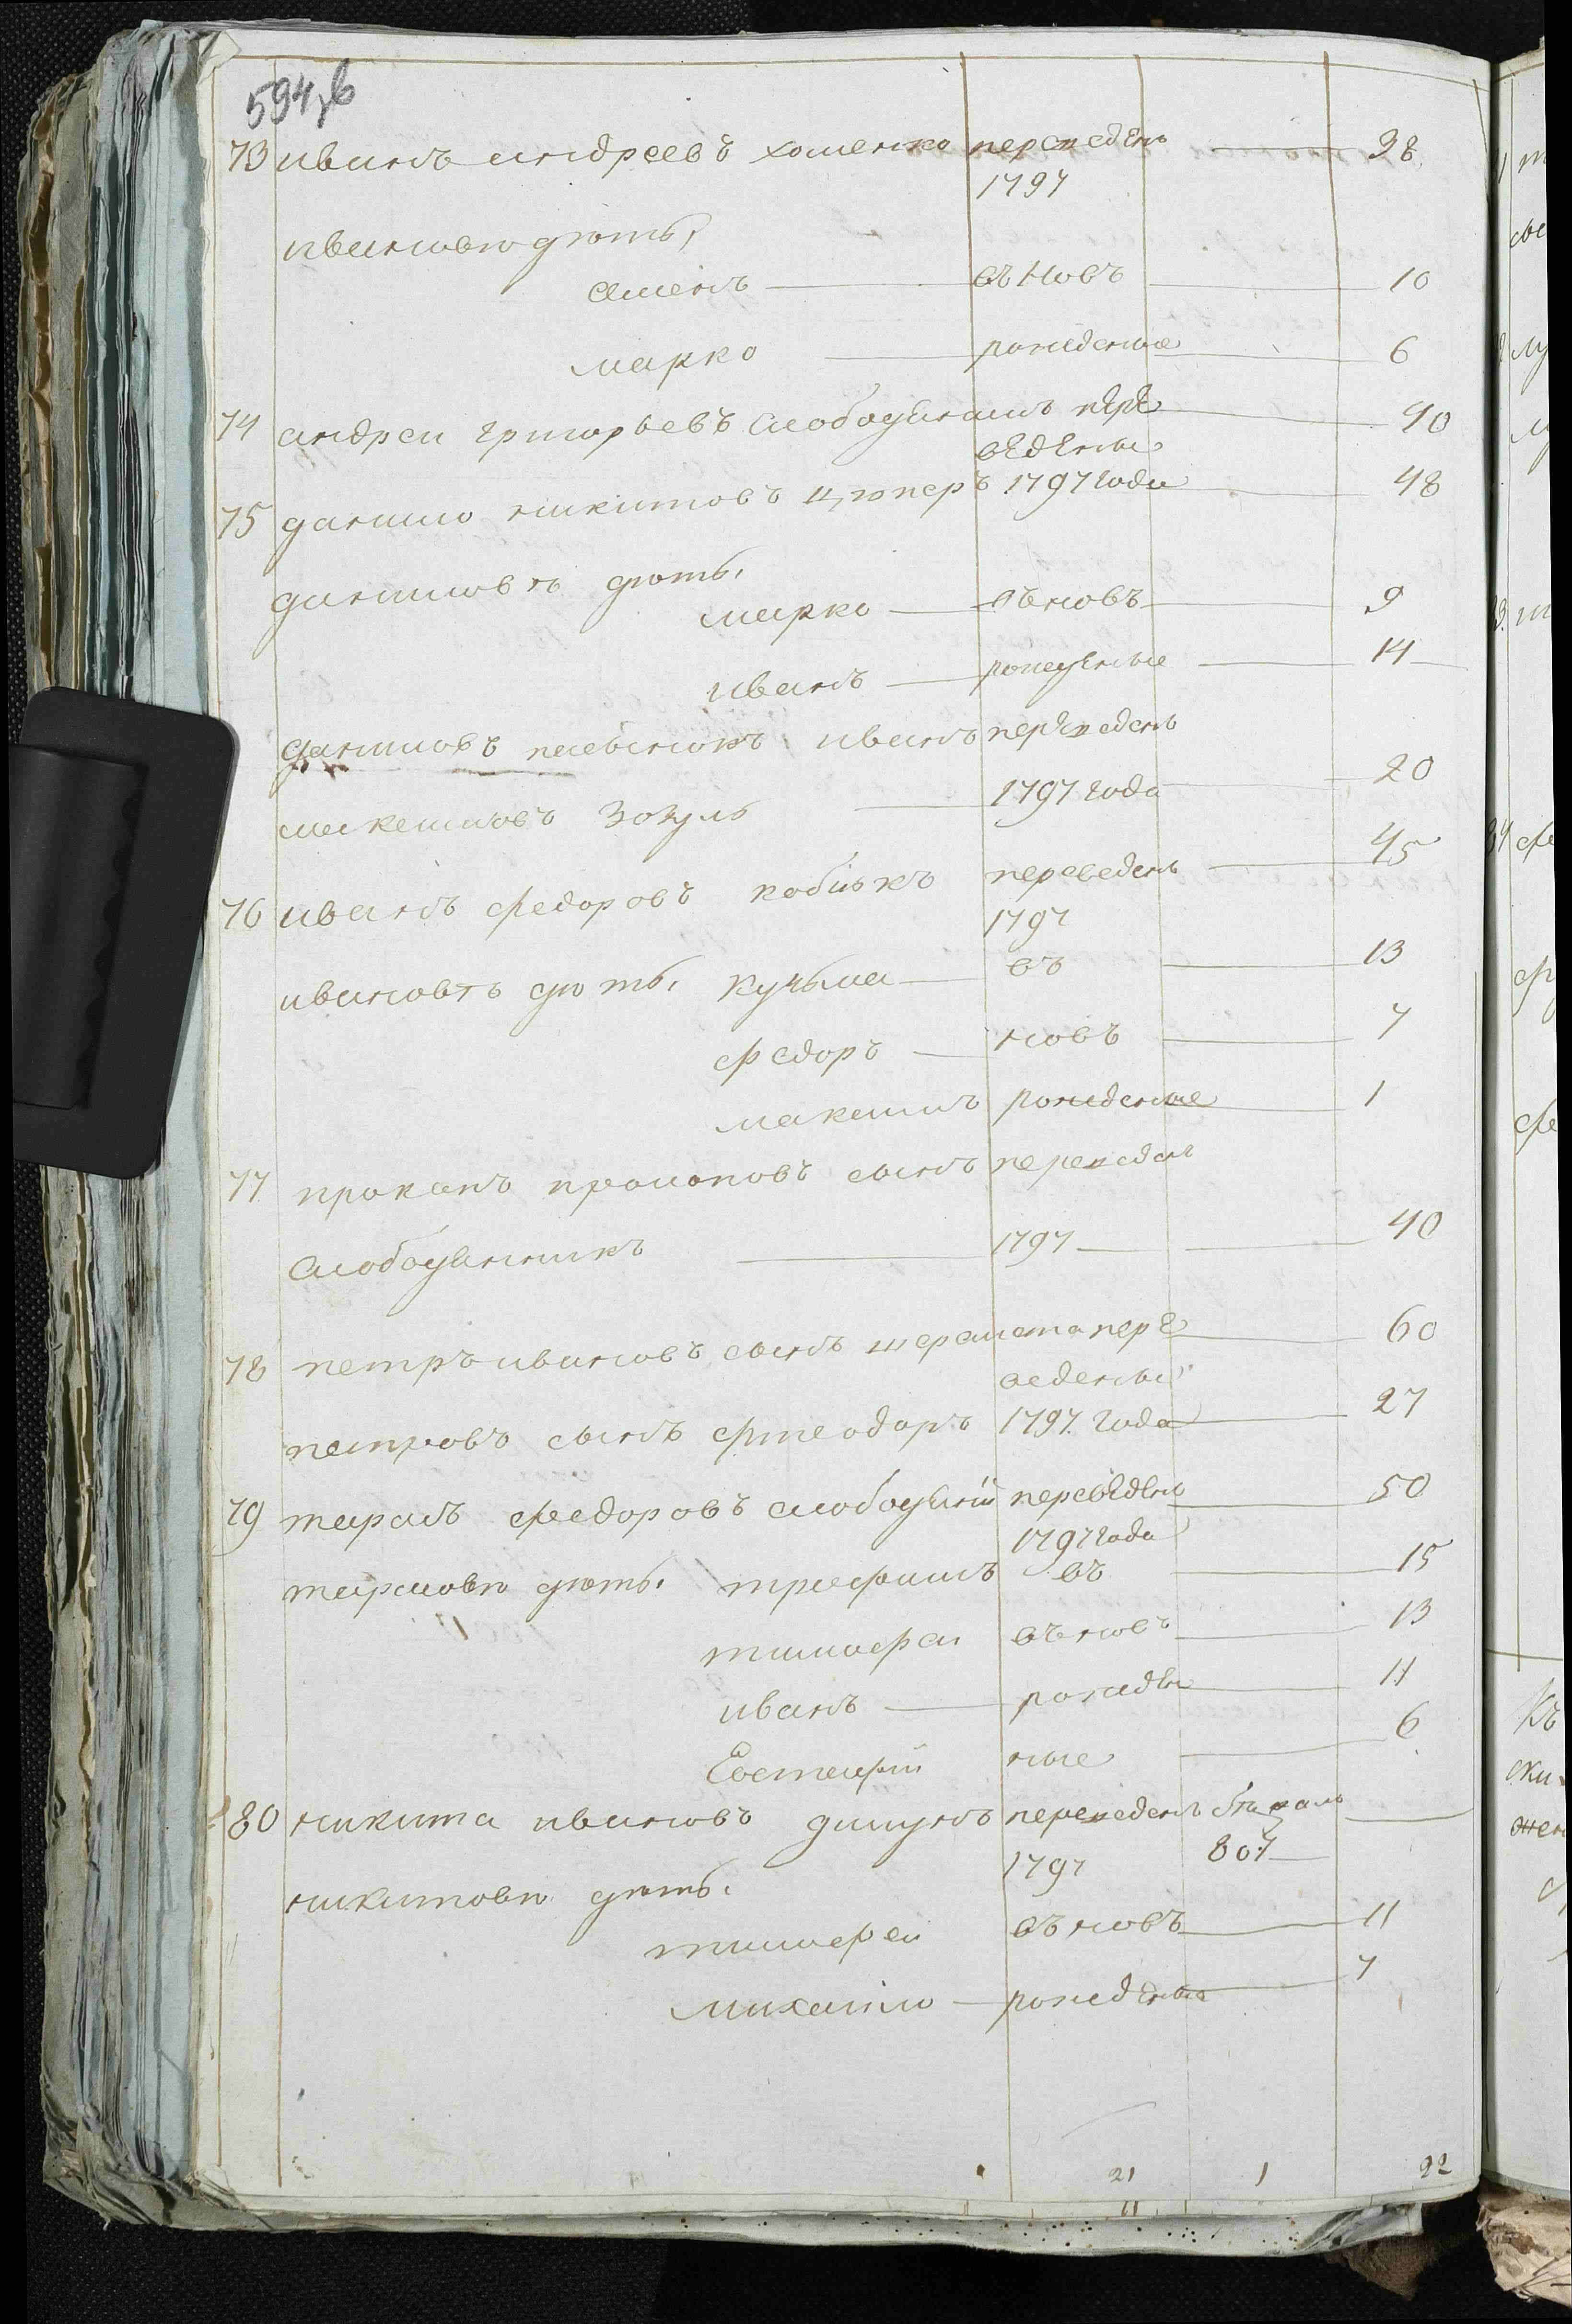 594 об
73 иванъ андреевъ хоменко переведенъ 38
1797
ивановы дѣти,
Семенъ въ Новъ 10
марко рожденые 6
74 андреи григорьевъ слободянамъ пере 40
ведены
75 данило никитовъ цюперъ 1797 года 48
даниловы дѣти,
марко въ новъ 9
иванъ рожденые 14
даниловъ пасынокъ иванъ переведенъ
1797 года 20
зозуль
76 иванъ федоровъ кобцькъ переведенъ 45
1797
ивановы дѣти, кузьма въ 13
федоръ новъ 7
максимъ рожденые 1
77 прокопъ прокоповъ сынъ переведенъ
слободянникъ 1797 40
78 петръ ивановъ сынъ шеремета пере 60
ведены
петровъ сынъ фтеодоръ 1797 года 27
79 тарасъ федоровъ слободяный переведенъ 50
1797 года
тарасовы дѣти, трефимъ въ 15
тимофеи въ новъ 13
иванъ рожде 11
Евстафий ные 6
80 никита ивановъ дицунъ переведенъ бѣжалъ
1797 807
никитовы дѣти,
тимофеи въ новъ 11
михаило рожденые 7
21 1 22